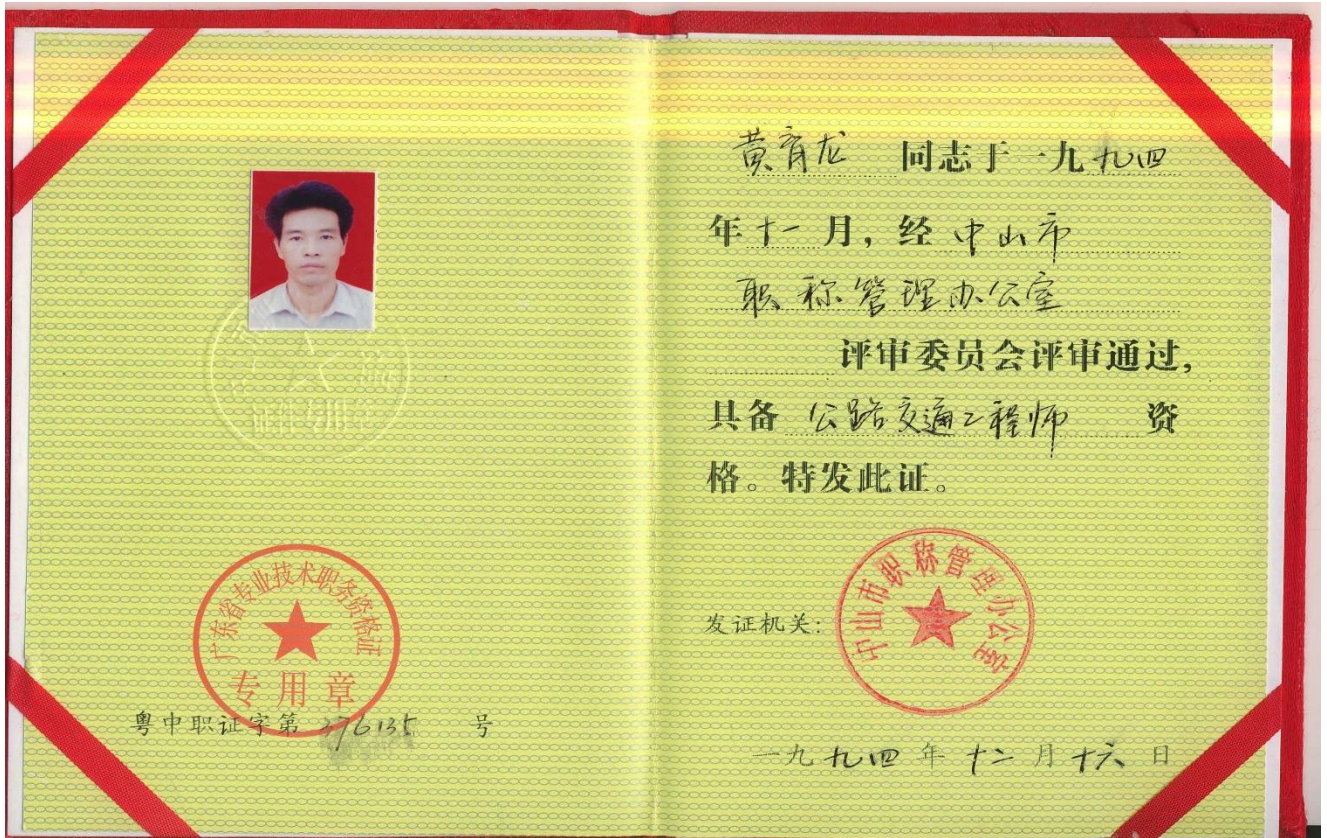 证件专用章
广东省专业技术职务资格证
专用章
粤中职证字第 376135 号
黄育龙 同志于一九九四
年十一月，经中山市
职称管理办公室
评审委员会评审通过，
具备 公路交通工程师 资
格。特发此证。
发证机关：
中山市职称管理办公室
一九九四年十二月十六日